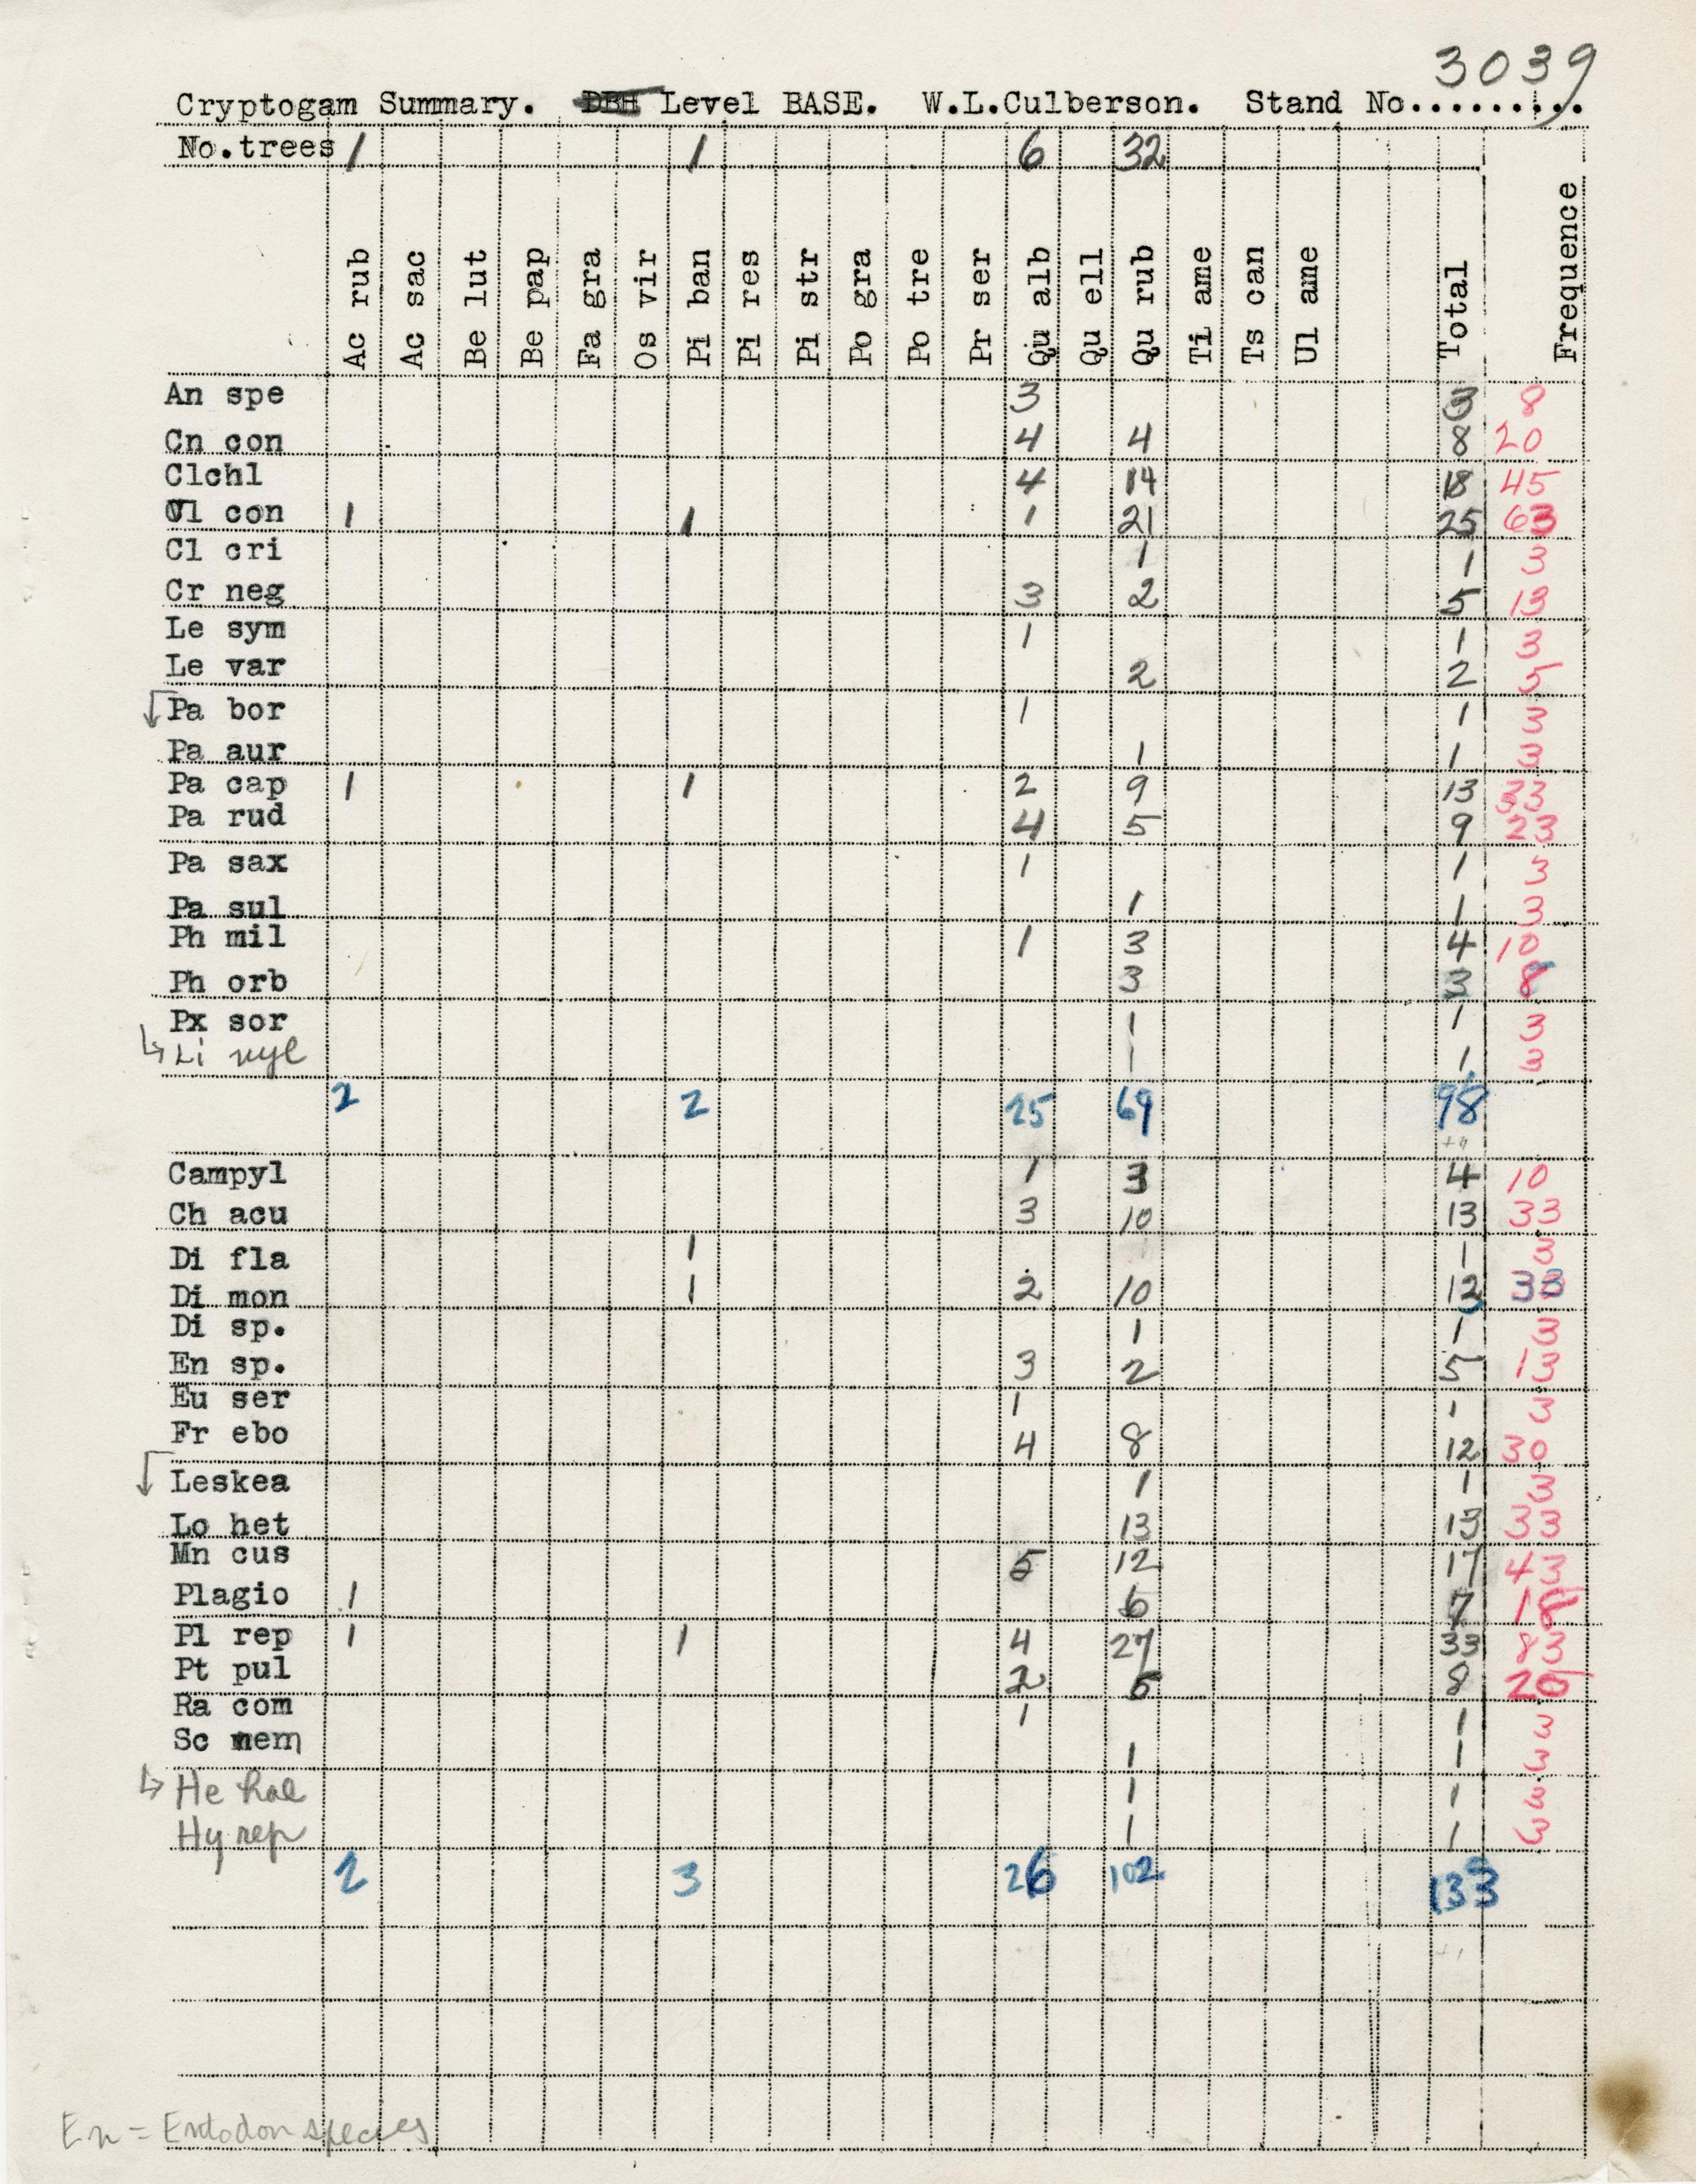 3039
Cryptogam Summary. DBH Level BASE. W.L.Culberson. Stand No.........
No.trees 1 1 6 32
Ac rub Ac sac Be lut Be pap Fa gra Os vir Pi ban Pi res Pi str Po gra Po tre Pr ser Qu alb Qu ell Qu rub Ti ame Ts can Ul ame Total Frequence
An spe 3 3 8
Cn con 4 4 8 20
Clchl 4 14 18 45
Cl con 1 1 1 21 25 63
Cl cri 1 1 3
Cr neg 3 2 5 13
Le sym 1 1 3
Le var 2 2 5
Pa bor 1 1 3
Pa aur 1 1 3
Pa cap 1 1 2 9 13 33
Pa rud 4 5 9 23
Pa sax 1 1 3
Pa sul 1 1 3
Ph mil 1 3 4 10
Ph orb 3 3 8
Px sor 1 1 3
Li nyl 1 1 3
2 2 25 69 98
Campyl 1 3 4 10
Ch acu 3 10 13 33
Di fla 1 1 3
Di mon 1 2 10 13 33
Di sp. 1 1 3
En sp. 3 2 5 13
Eu ser 1 1 3
Fr ebo 4 8 12 30
Leskea 1 1 3
Lo het 13 13 33
Mn cus 5 12 17 43
Plagio 1 6 7 18
Pl rep 1 1 4 27 33 83
Pt pul 2 6 8 20
Ra com 1 1 3
Sc nem 1 1 3
He hal 1 1 3
Hy rep 1 1 3
2 3 26 102 133
En = Entodon species